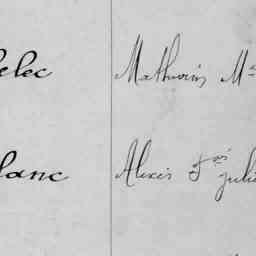 elec Mathurin Mⁱᵉ
lanc Alexis Fᵒⁱˢ juli